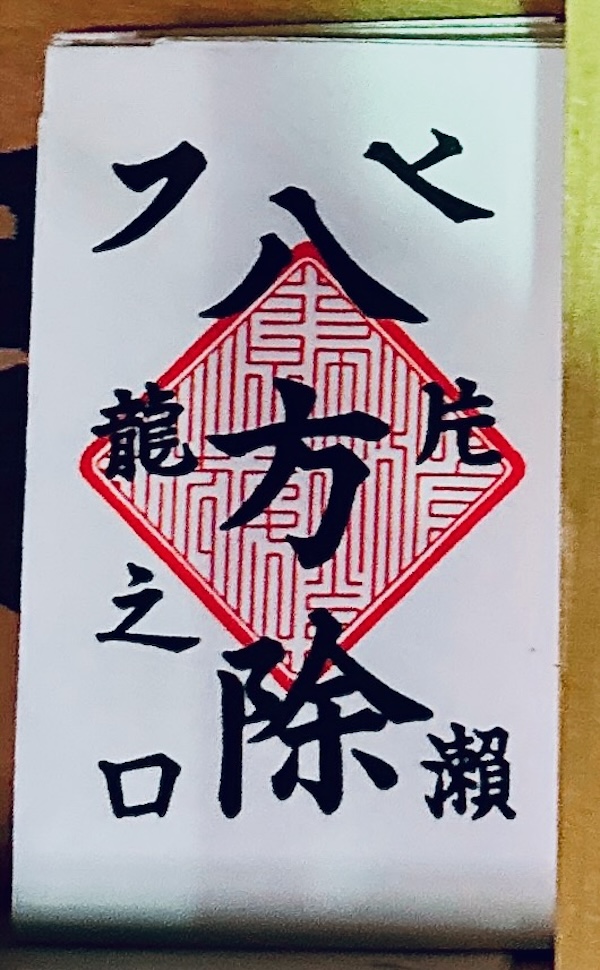 ヒ片瀬
八方除
フ龍之口